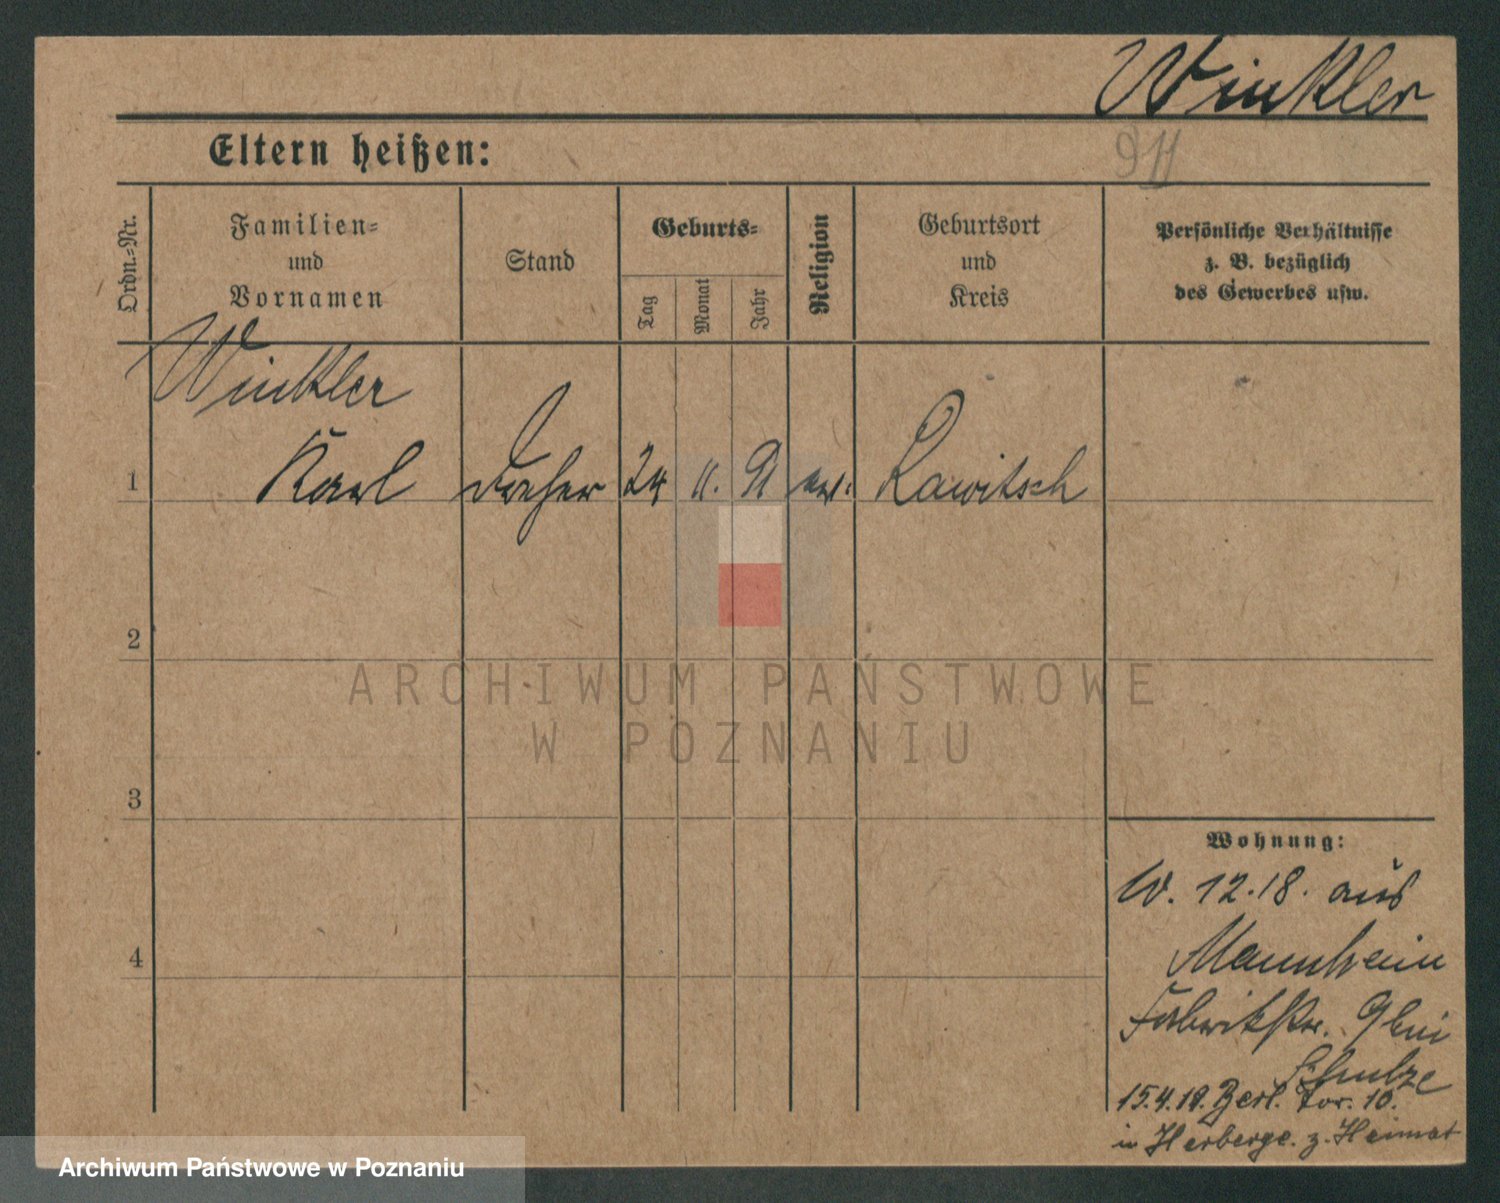 Winkler
91
Eltern heißen:
Ordn.-Nr.
Familien-
und
Vornamen
Stand
Geburts-
Tag
Monat
Jahr
Religion
Geburtsort
und
Kreis
Persönliche Verhältnisse
z. B. bezüglich
des Gewerbes usw.
Winkler
1 Karl Dreher 24 11. 91 ev. Rawitsch
2
3
4
Wohnung:
W. 12.18. aus
Mannheim
Fabrikstr. 9 bei
Schulze
15.4.18. Berl. Tor. 10.
in Herberge. z. Heimat
ARCHIWUM PAŃSTWOWE
W POZNANIU
Archiwum Państwowe w Poznaniu